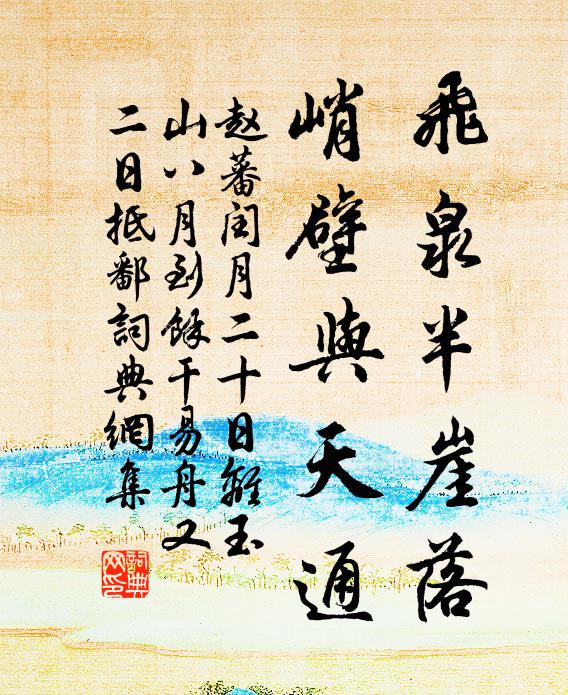 飛泉半崖落
峭壁與天通
赵蕃閏月二十日離玉
山八月到餘干易舟又
二日抵鄱詞典網集